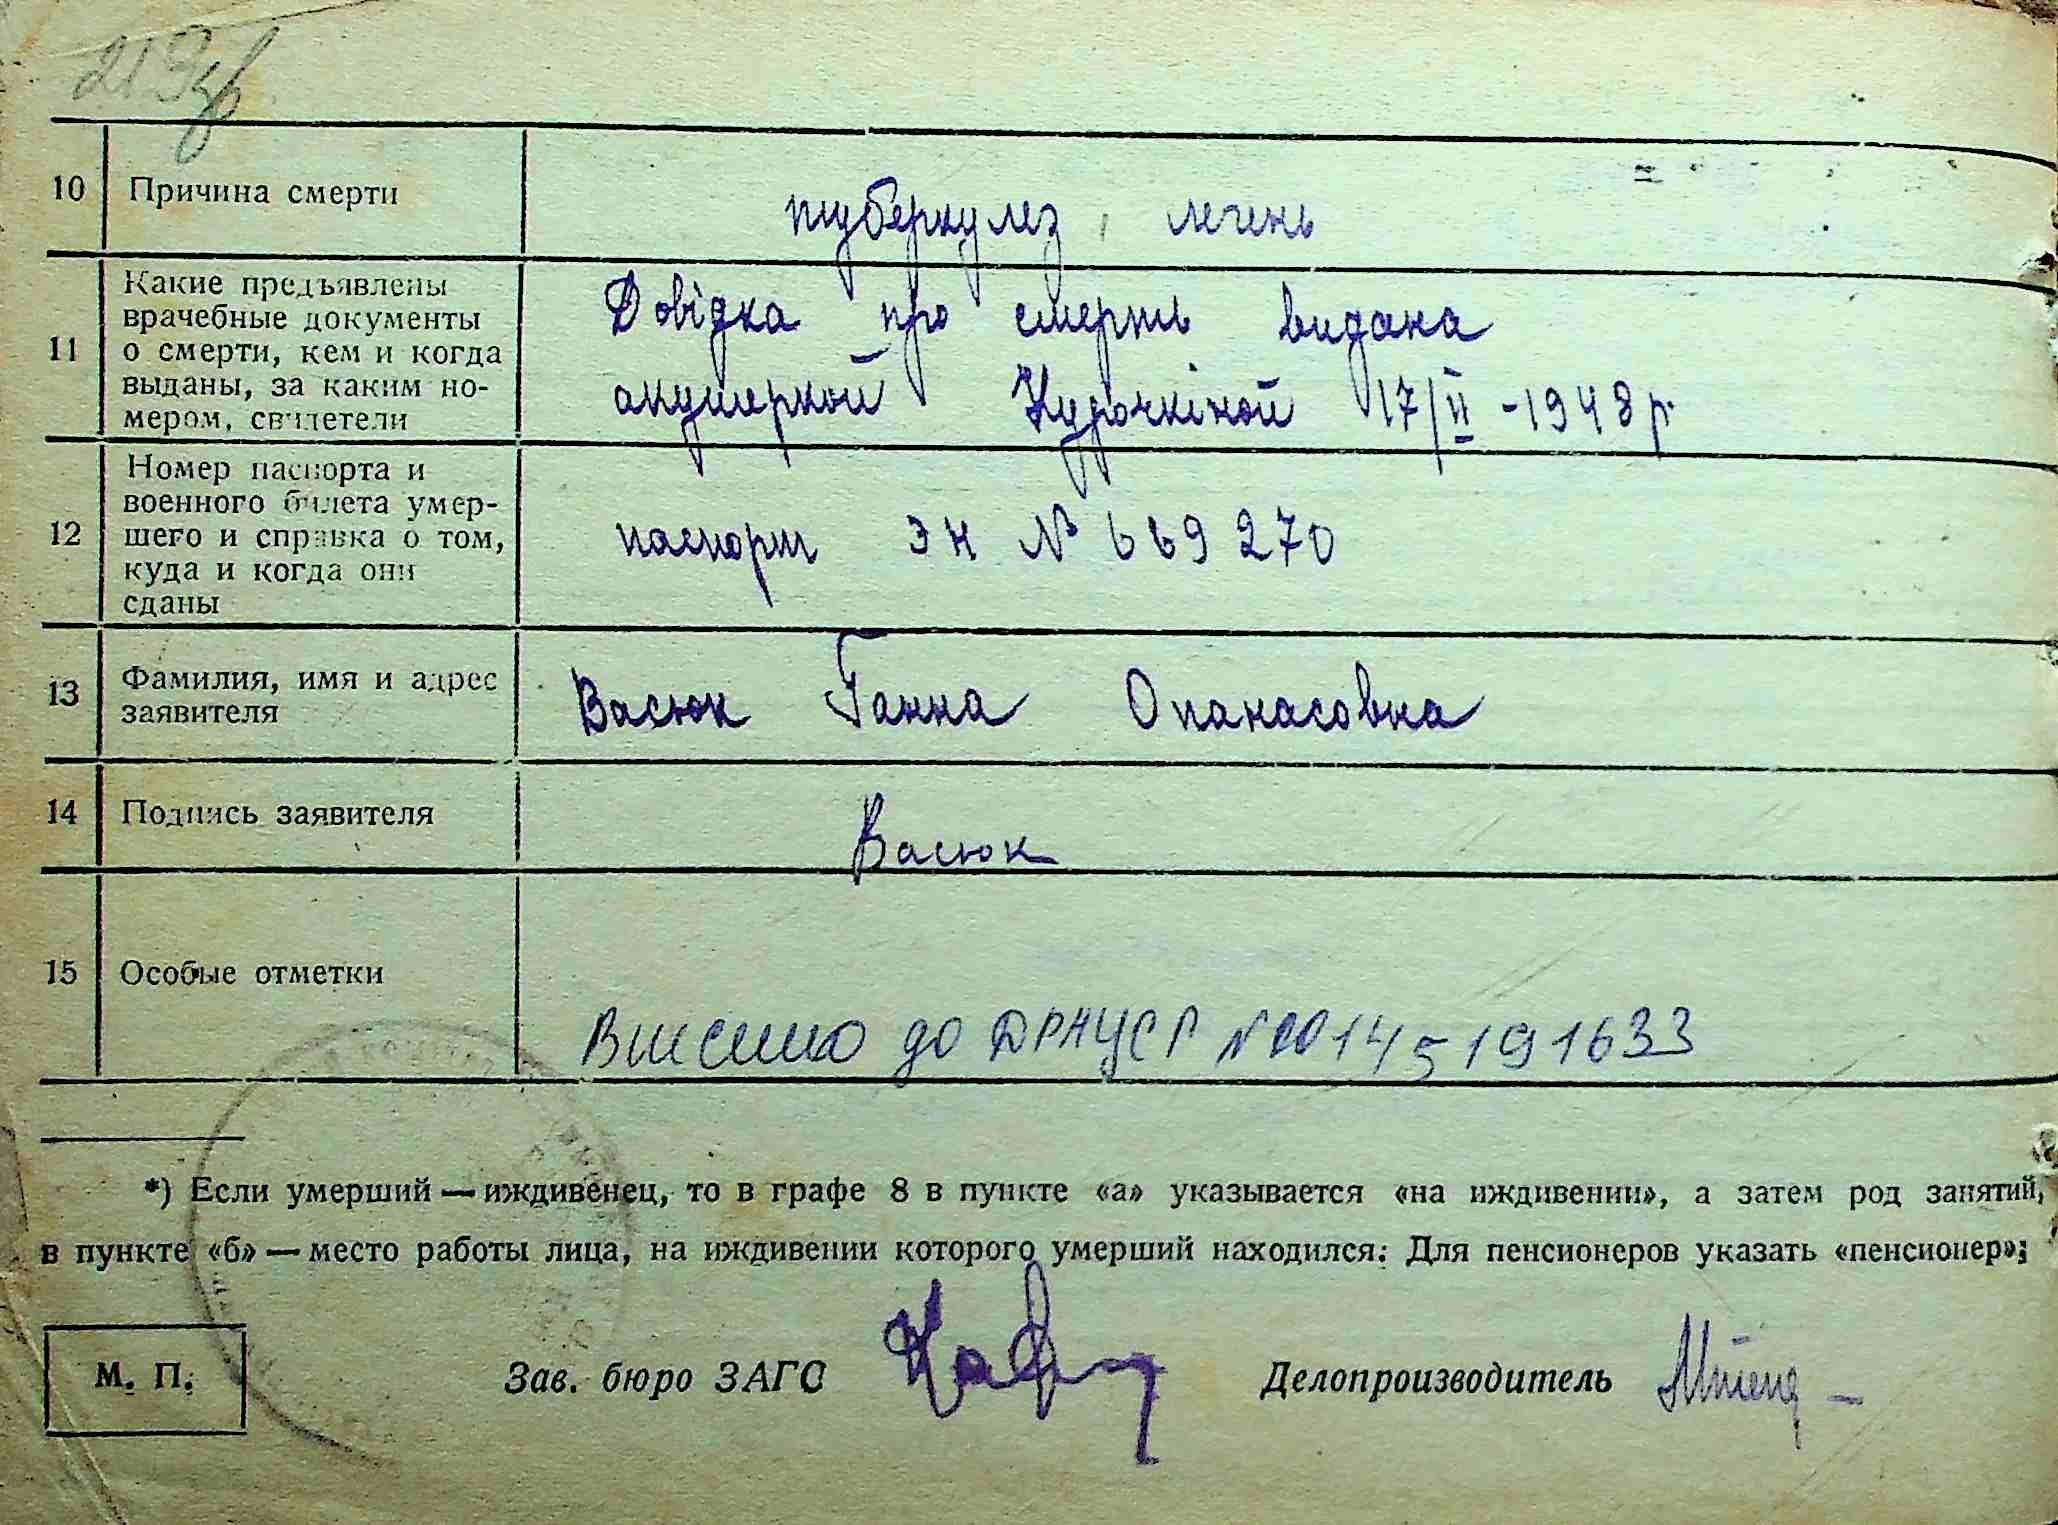 213
10 Причина смерти туберкулез легень
11 Какие предъявлены
врачебные документы
о смерти, кем и когда
выданы, за каким но-
мером, свидетели
Довідка про смерть видана
акушеркой Курочкіной 17/II - 1948 р.
12 Номер паспорта и
военного билета умер-
шего и справка о том,
куда и когда они
сданы
паспорт ЭН № 669270
13 Фамилия, имя и адрес
заявителя
Васюк Ганна Опанасовна
14 Подпись заявителя Васюк
15 Особые отметки
Внесено до ДРАЦСГ № 00145191633
*) Если умерший — иждивенец, то в графе 8 в пункте «а» указывается «на иждивении», а затем род занятий,
в пункте «б» — место работы лица, на иждивении которого умерший находился. Для пенсионеров указать «пенсионер»;
М. П. Зав. бюро ЗАГС Делопроизводитель